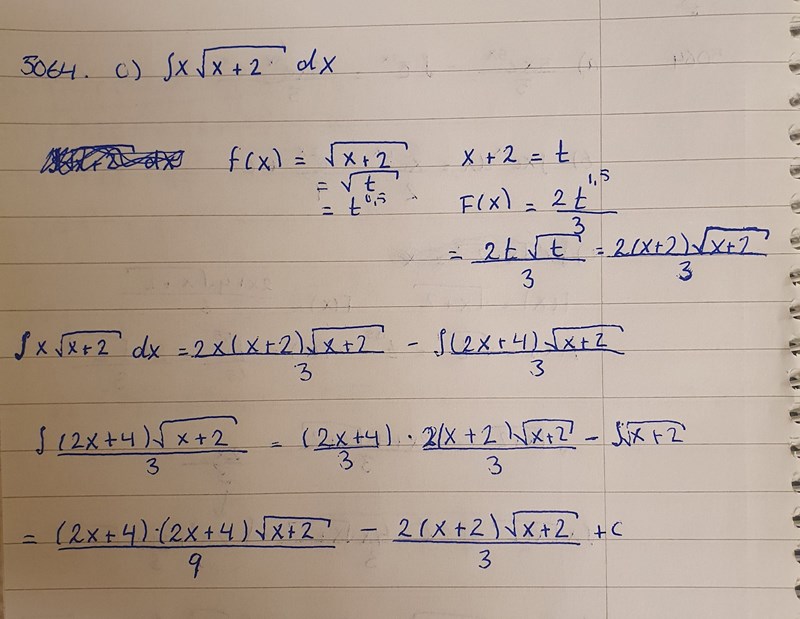 3064. c) ∫x√(x+2) dx
f(x) = √(x+2) x+2 = t
= √t
= t^0,5 F(x) = 2t^1,5/3
= 2t√t/3 = 2(x+2)√(x+2)/3
∫x√(x+2) dx = 2x(x+2)√(x+2)/3 - ∫(2x+4)√(x+2)/3
∫(2x+4)√(x+2)/3 = (2x+4)/3 · 2(x+2)√(x+2)/3 - ∫√(x+2)
= (2x+4)·(2x+4)√(x+2)/9 - 2(x+2)√(x+2)/3 + C